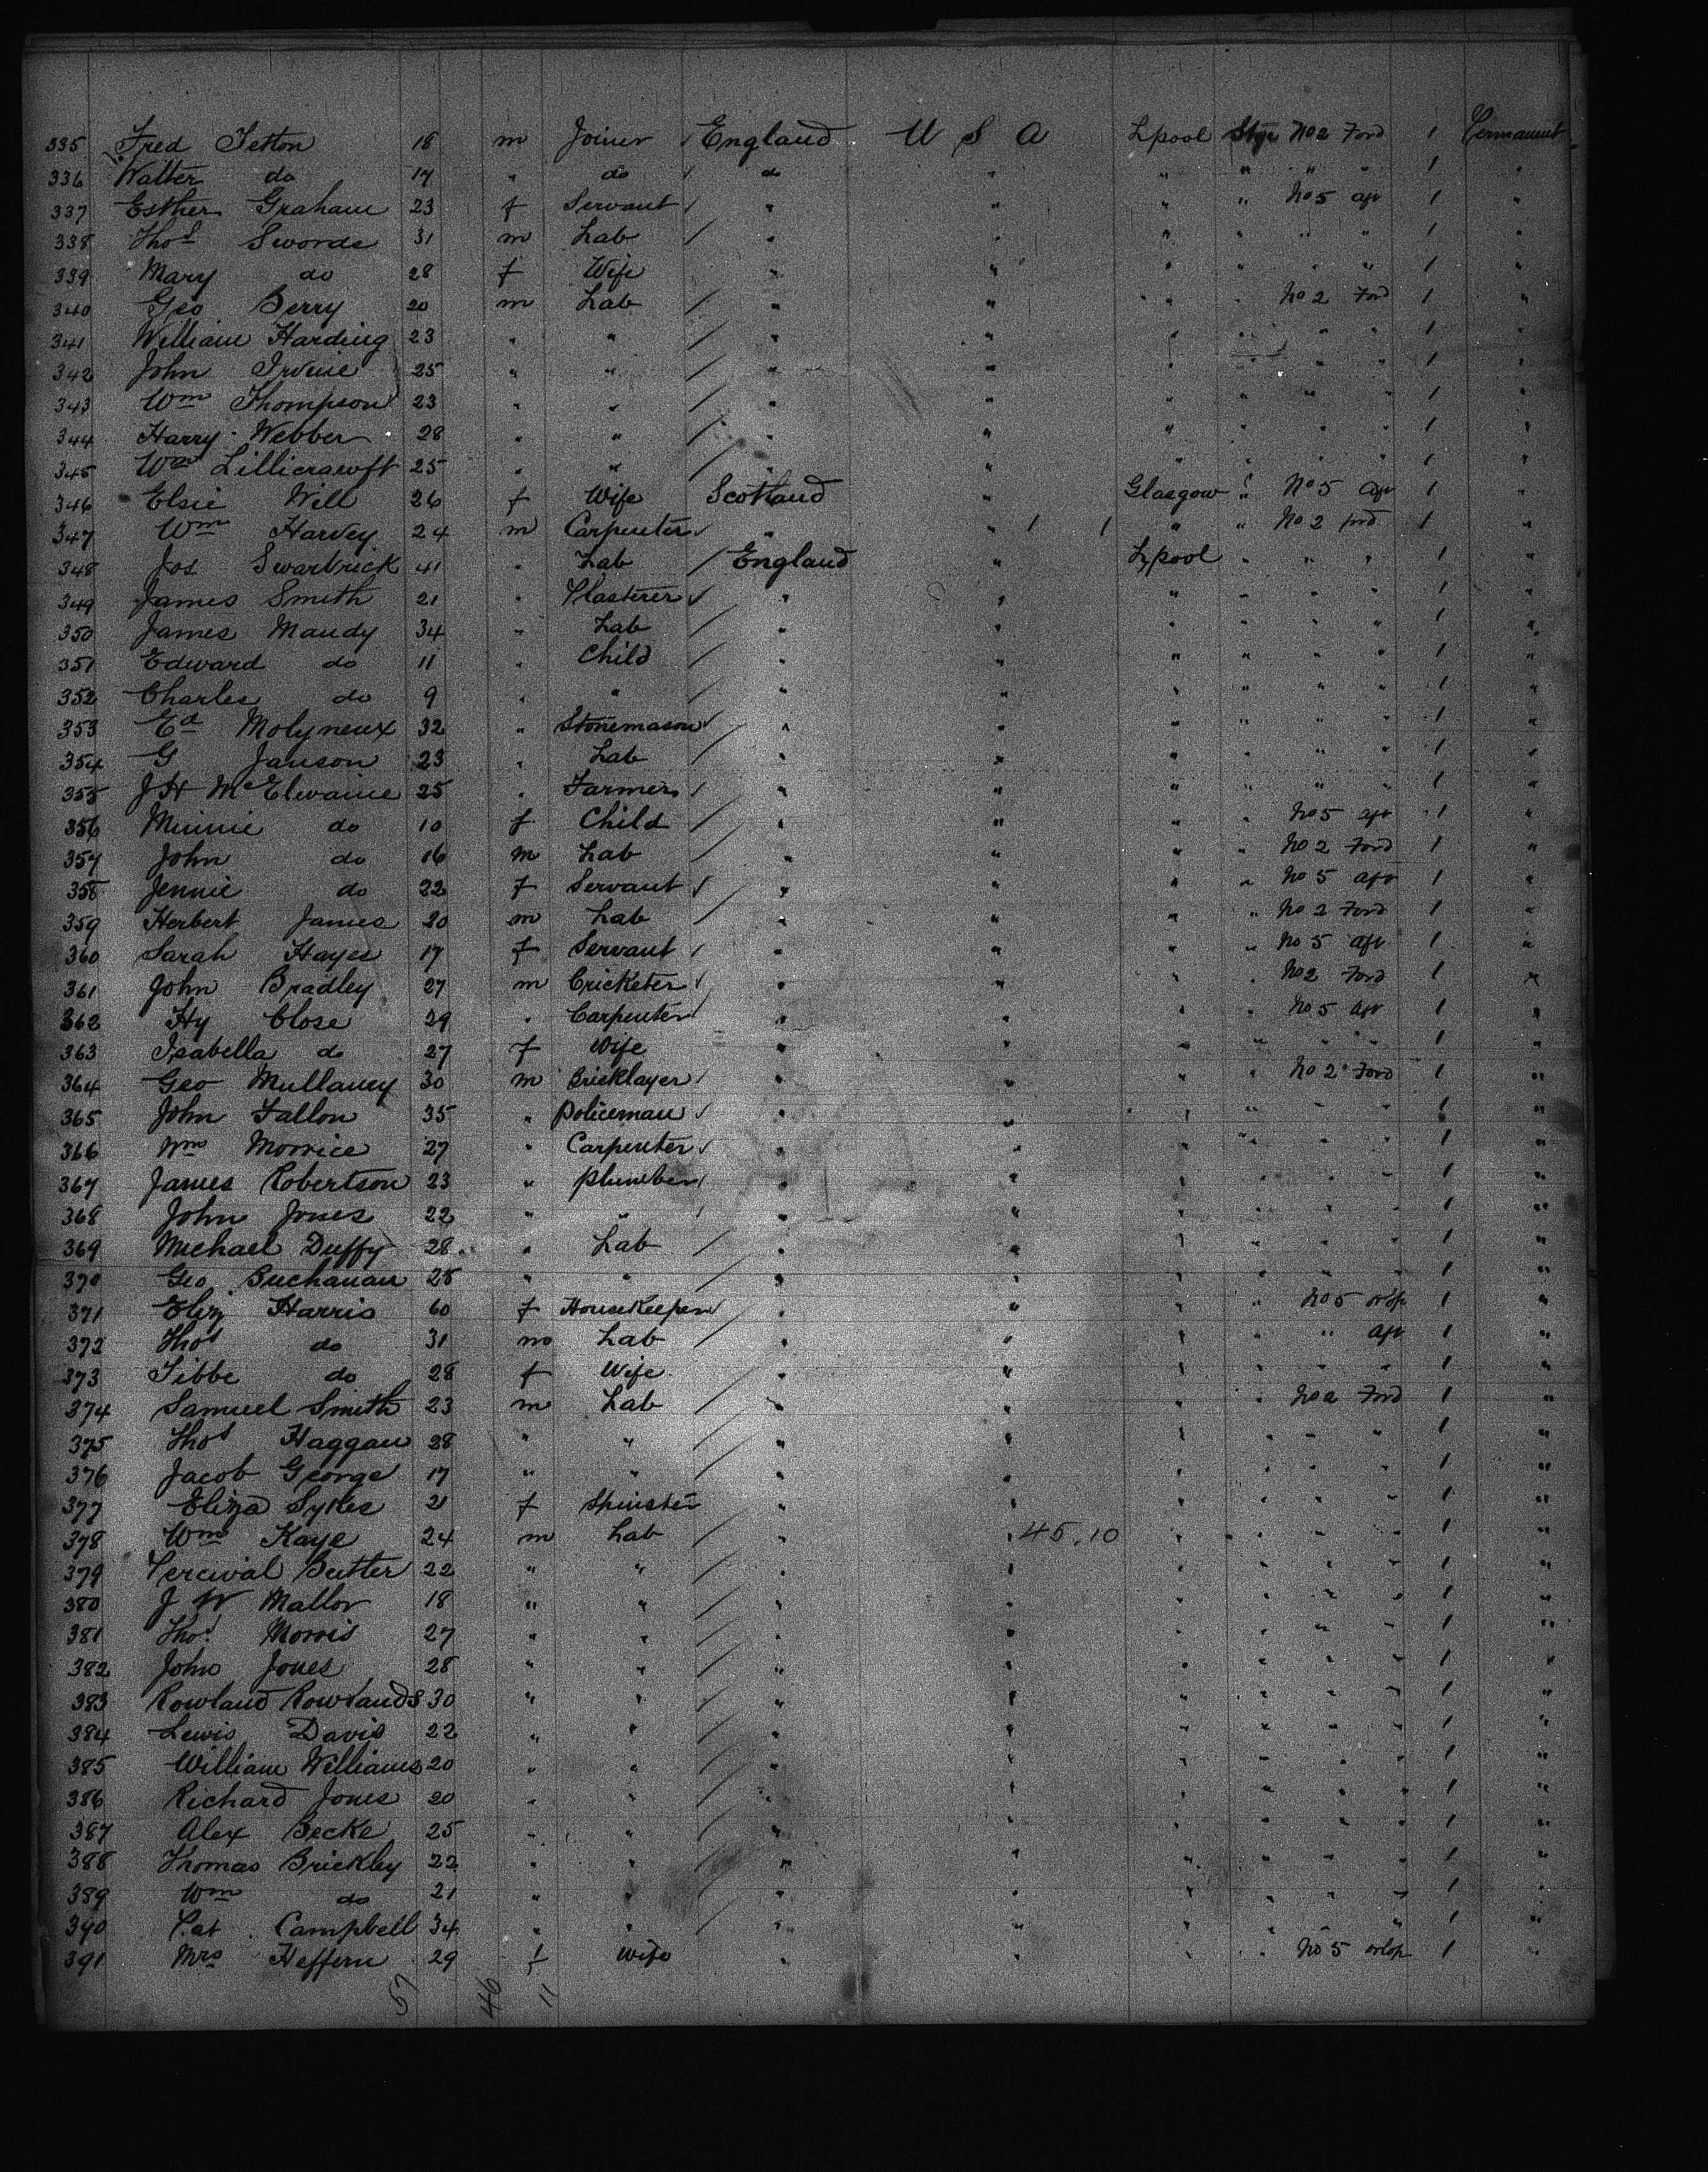 335 Fred Tetton 18 m Joiner / England U S A Lpool Stge No 2 Ford 1 Permanent
336 Walter do 17 " do / do " " " " " 1 "
337 Esther Graham 23 f Servant / " " " " No 5 aft 1 "
338 Thos Swords 31 m Lab / " " " " " " 1 "
339 Mary do 28 f Wife " " " " " " 1 "
340 Geo Berry 20 m Lab / " " " " No 2 Ford 1 "
341 William Harding 23 " " / " " " " " " 1 "
342 John Irvine 25 " " / " " " " " " 1 "
343 Wm Thompson 23 " " / " " " " " " 1 "
344 Harry Webber 28 " " / " " " " " " 1 "
345 Wm Lillicrawft 25 " " / " " " " " " 1 "
346 Elsie Will 26 f Wife Scotland " Glasgow " No 5 aft 1 "
347 Wm Harvey 24 m Carpenter / " " 1 1 " " No 2 ford 1 "
348 Jos Swarbrick 41 " Lab / England " Lpool " " " 1 "
349 James Smith 21 " Plasterer / " " " " " " 1 "
350 James Maudy 34 " Lab / " " " " " " 1 "
351 Edward do 11 " Child / " " " " " " 1 "
352 Charles do 9 " " / " " " " " " 1 "
353 Ed Molyneux 32 " Stonemason / " " " " " " 1 "
354 G Janson 23 " Lab / " " " " " " 1 "
355 J H McElwaine 25 " Farmer / " " " " " " 1 "
356 Minnie do 10 f Child / " " " " No 5 aft 1 "
357 John do 16 m Lab / " " " " No 2 Ford 1 "
358 Jennie do 22 f Servant / " " " " No 5 aft 1 "
359 Herbert James 20 m Lab / " " " " No 2 Ford 1 "
360 Sarah Hayes 17 f Servant / " " " " No 5 aft 1 "
361 John Bradley 27 m Cricketer / " " " " No 2 Ford 1 "
362 Hy Close 29 " Carpenter / " " " " No 5 aft 1 "
363 Isabella do 27 f Wife " " " " " " 1 "
364 Geo Mullaney 30 m Bricklayer / " " " " No 2 Ford 1 "
365 John Fallon 35 " Policeman / " " " " " " 1 "
366 Wm Morrice 27 " Carpenter / " " " " " " 1 "
367 James Robertson 23 " Plumber / " " " " " " 1 "
368 John Jones 22 " " / " " " " " " 1 "
369 Michael Duffy 28 " Lab / " " " " " " 1 "
370 Geo Buchanan 28 " " / " " " " " " 1 "
371 Eliz Harris 60 f Housekeeper / " " " " No 5 orlop 1 "
372 Thos do 31 m Lab / " " " " " aft 1 "
373 Tibbe do 28 f Wife " " " " " " 1 "
374 Samuel Smith 23 m Lab / " " " " No 2 Ford 1 "
375 Thos Haggan 28 " " / " " " " " " 1 "
376 Jacob George 17 " " / " " " " " " 1 "
377 Eliza Sykes 21 f Spinster " " " " " " 1 "
378 Wm Kaye 24 m Lab / " " 45.10 " " " " 1 "
379 Percival Butter 22 " " / " " " " " " 1 "
380 J W Mallor 18 " " / " " " " " " 1 "
381 Thos Morris 27 " " / " " " " " " 1 "
382 John Jones 28 " " / " " " " " " 1 "
383 Rowland Rowlands 30 " " / " " " " " " 1 "
384 Lewis Davis 22 " " / " " " " " " 1 "
385 William Williams 20 " " / " " " " " " 1 "
386 Richard Jones 20 " " / " " " " " " 1 "
387 Alex Becke 25 " " / " " " " " " 1 "
388 Thomas Brickley 22 " " / " " " " " " 1 "
389 Wm do 21 " " / " " " " " " 1 "
390 Pat Campbell 34 " " / " " " " " " 1 "
391 Mrs Heffern 29 f wife " " " " No 5 orlop 1 "
57 46 11